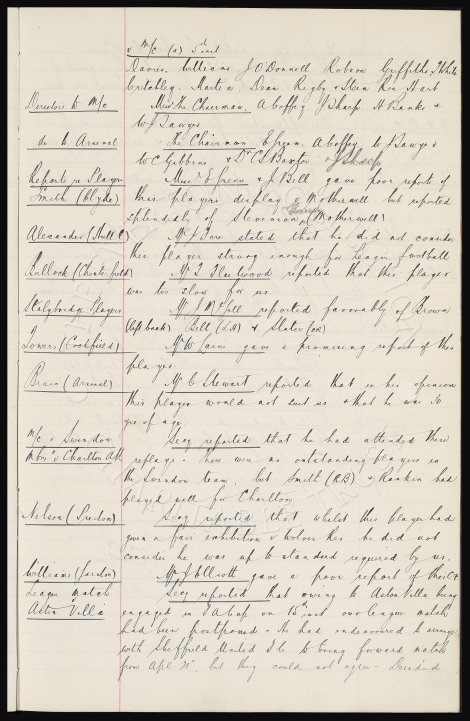 v M/c (a) 5th inst
Davies, Williams J O'Donnell Robson Griffiths T White
Critchley. Martin Dean Rigby & Stein Res Hart
Directors to M/c Messrs The Chairman, A Coffey J Sharp H Banks &
W J Sawyer
do to Arsenal The Chairman E Green A Coffey W J Sawyer
W C Gibbins & Dr C S Baxter & J Sharp
Reports re Players Messrs E Green & J Bell gave poor reports of
Smith (Clyde) this players display v Motherwell but reported
splendidly of Stevenson (Motherwell)
Alexander (Hull C) Mr J Fare stated that he did not consider
this player strong enough for League football
Bullock (Chesterfield) Mr T Fleetwood reported that this player
was too slow for us.
Stalybridge Players Mr J McGill reported favorably of Brown
(left back) Bell (LH) & Slater (OR)
Towers (Cockfield) Mr W Cain gave a promising report of this
player.
Brain (Arsenal) Mr C Stewart reported that in his opinion
this player would not suit us & that he was 30
yrs of age.
M/c v Swindon Secy reported that he had attended these
Mbro v Charlton Ath replays. There were no outstanding players in
the Swindon team, but Smith (RB) & Rankin had
played well for Charlton
Nelson (Preston) Secy reported that whilst this player had
given a fair exhibition v Wolves Res he did not
consider he was up to standard required by us.
Williams (Swindon) Mr J Elliott gave a poor report of this CF
League match Secy reported that owing to Aston Villa being
Aston Villa engaged in FA Cup on 15th inst our league match
had been postponed. He had endeavoured to arrange
with Sheffield United F C to bring forward match
from Apl 25th, but they could not agree - Decided